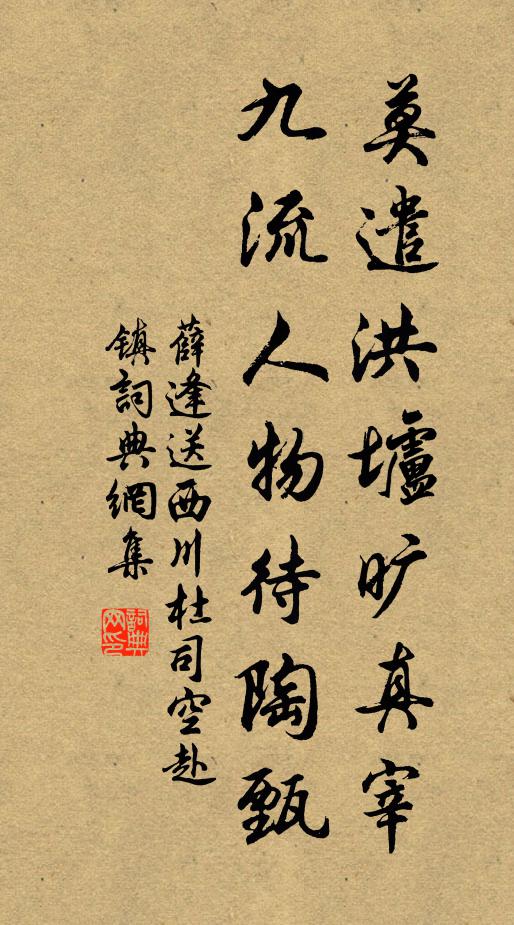 莫遣洪壚旷真宰
九流人物待陶甄
薛逢送西川杜司空赴
镇詞典網集
詞典网印